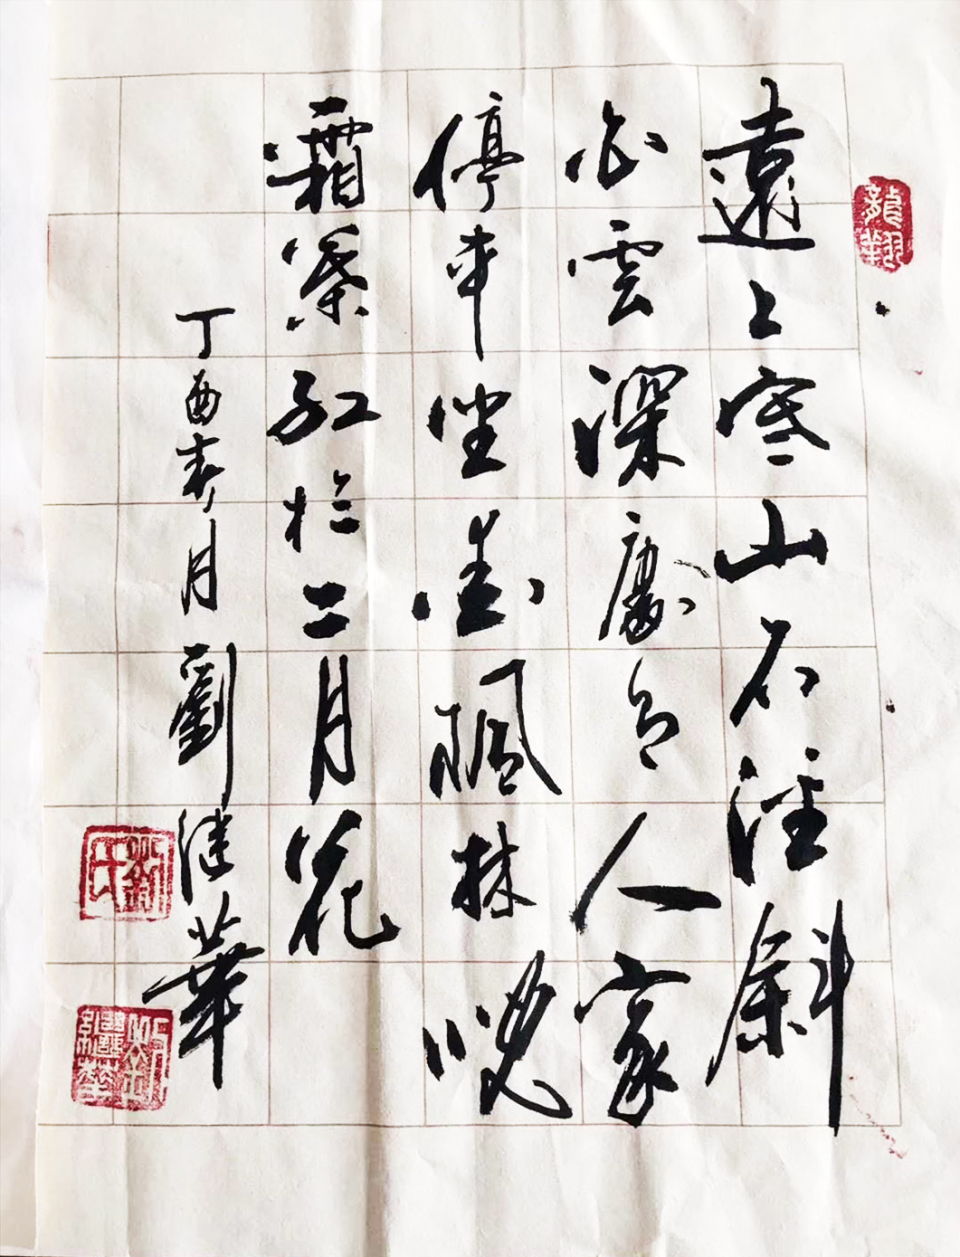 龍翔
遠上寒山石径斜
白雲深處有人家
停車坐愛楓林晚
霜葉紅於二月花
丁酉春月劉继華
劉氏
劉繼華